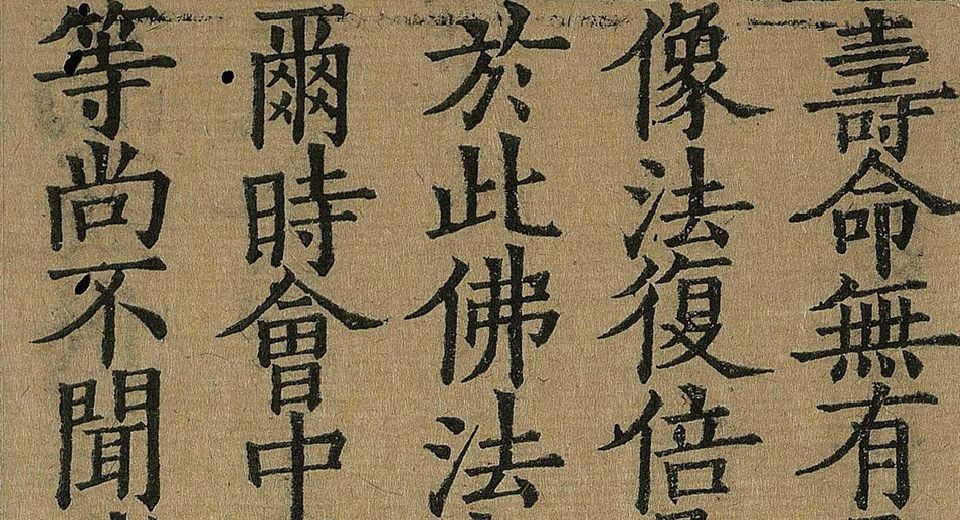 壽命無有
像法復倍
於此佛法
爾時會中
等尚不聞